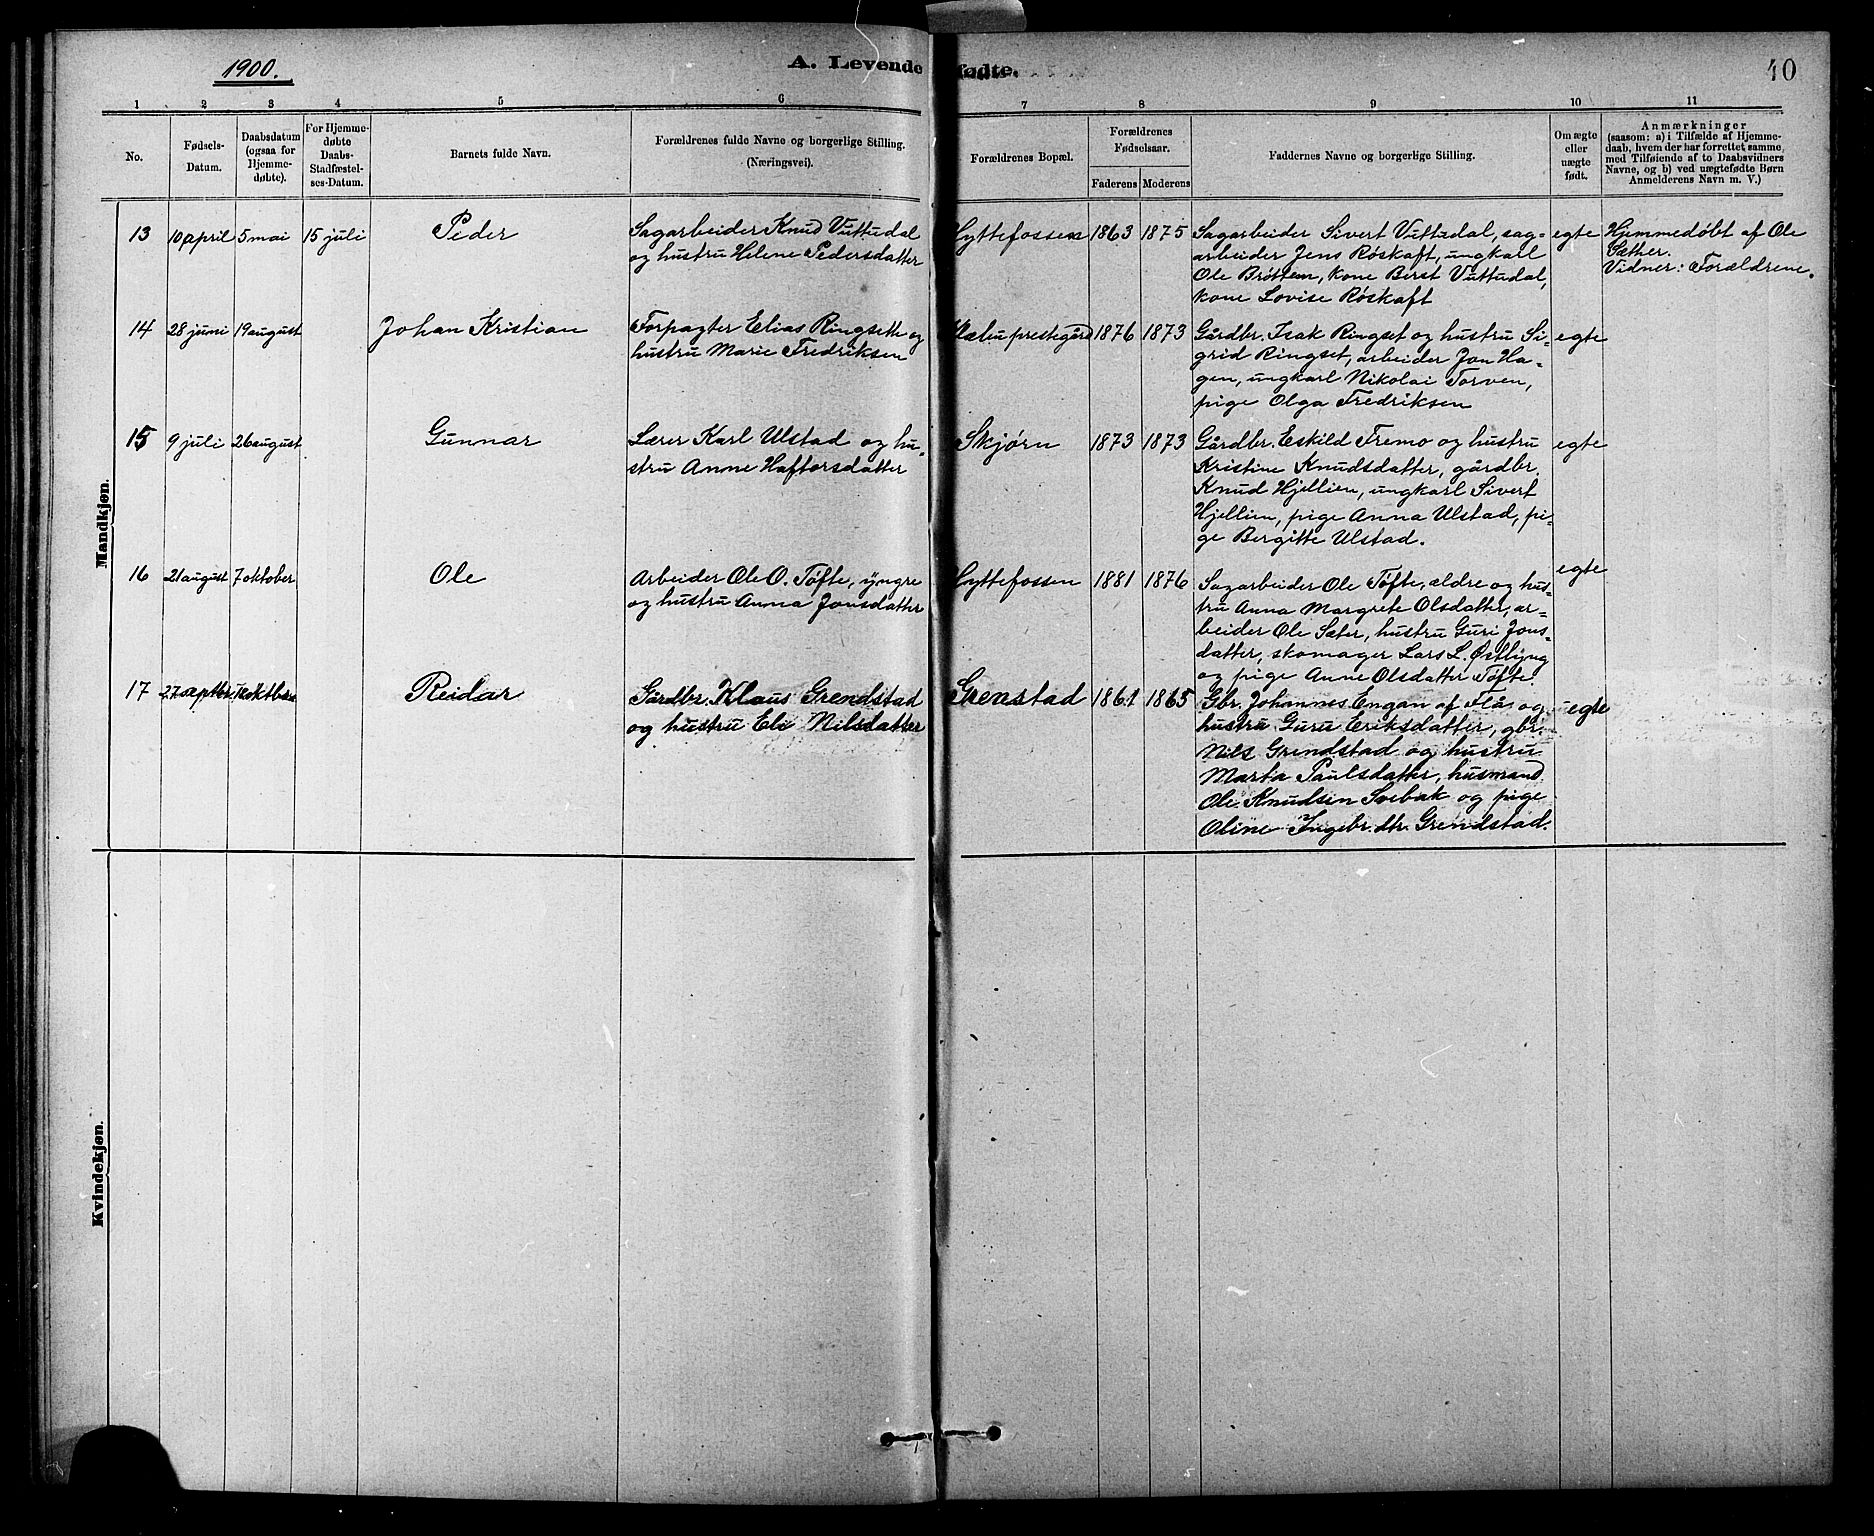 1900.
A. Levende fødte.
40
1 2 3 4 5 6 7 8 9 10 11
No.
Fødsels-
Datum.
Daabsdatum
(ogsaa for
Hjemme-
døbte).
For Hjemme-
døbte
Daabs-
Stadfæstel-
ses-Datum.
Barnets fulde Navn.
Forældrenes fulde Navne og borgerlige Stilling.
(Næringsvei).
Forældrenes Bopæl.
Forældrenes
Fødselsaar.
Faderens Moderens
Faddernes Navne og borgerlige Stilling.
Om ægte
eller
uægte
født.
Anmærkninger
(saasom: a) i Tilfælde af Hjemme-
daab, hvem der har forrettet samme,
med Tilføiende af to Daabsvidners
Navne, og b) ved uægtefødte Børn
Anmelderens Navn m. V.)
Mandkjøn.
13 10 april 5 mai 15 juli Peder
Sagarbeider Knud Vuttudal
og hustru Helene Pedersdatter
Hyttefossen 1863 1875
Sagarbeider Sivert Vuttudal, sag-
arbeider Jens Röskaft, ungkarl
Ole Bröttem, kone Berst Vuttudal,
kone Lovise Röskaft
egte
Hjemmedöbt af Ole
Sæther.
Vidner: Forældrene.
14 28 juni 19 august Johan Kristian
Forpagter Elias Ringseth og
hustru Marie Fredriksen
Klæbu prestegård 1876 1873
Gårdbr. Isak Ringset og hustru Si-
grid Ringset, arbeider Jon Ha-
gen, ungkarl Nikolai Torven,
pige Olga Fredriksen
egte
15 9 juli 26 august Gunnar
Lærer Karl Ulstad og hu-
stru Anne Haftorsdatter
Skjørn 1873 1873
Gårdbr. Eskild Fremo og hustru
Kristine Knudsdatter, gårdbr.
Knud Hjellien, ungkarl Sivert
Hjellien, pige Anna Ulstad, pi-
ge Bergitte Ulstad.
egte
16 21 august 7 oktober Ole
Arbeider Ole O. Tøfte, yngre
og hustru Anna Jonsdatter
Hyttefossen 1881 1876
Sagarbeider Ole Tøfte, ældre og hus-
tru Anna Margrete Olsdatter, ar-
beider Ole Sæter, hustru Guri Jons-
datter, skomager Lars L. Østbyng
og pige Anne Olsdatter Tøfte.
egte
17 27 septbr. oktber Reidar
Gårdbr. Klaus Grendstad
og hustru Eli Nilsdatter
Grenstad 1861 1865
Gbr. Johannes Engan af Flå og
hustru Guru Eriksdatter, gbr.
Nils Grendstad og hustru
Marta Paulsdatter, husmand
Ole Knudsen Svebak og pige
Oline Ingebr.dtr. Grendstad.
egte
Kvindekjøn.